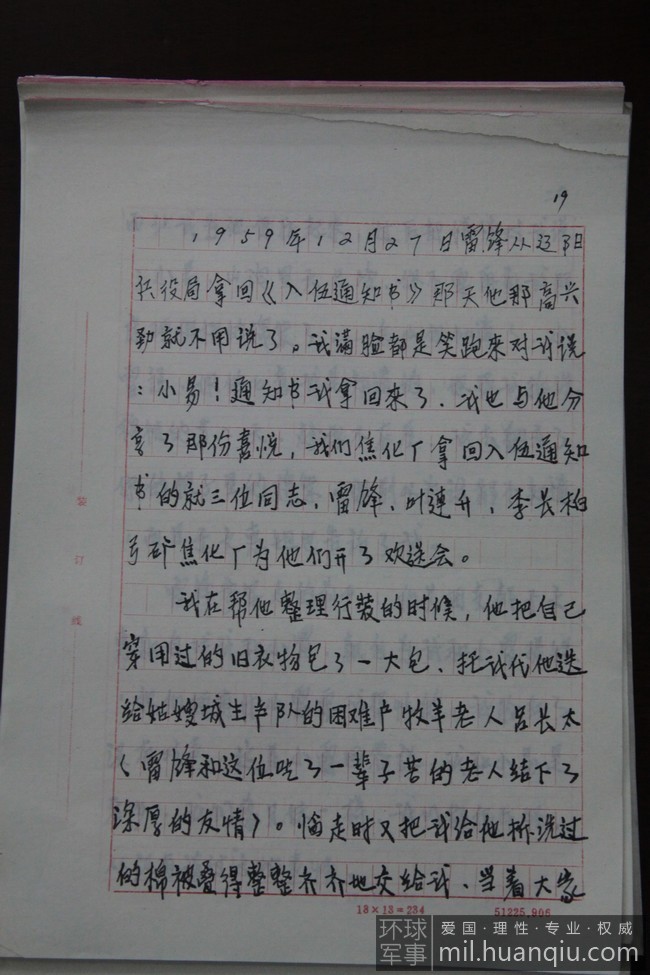 19
1959年12月27日雷锋从辽阳
兵役局拿回《入伍通知书》那天他那高兴
劲就不用说了。我满脸都是笑跑来对我说
:小易!通知书我拿回来了.我也与他分
享了那份喜悦,我们焦化厂拿回入伍通知
书的就三位同志,雷锋、叶连升、李长柏
弓矿焦化厂为他们开了欢送会。
我在帮他整理行装的时候,他把自己
穿用过的旧衣物包了一大包、托我代他送
给姑嫂城生产队的困难户牧羊老人吕长太
(雷锋和这位吃了一辈子苦的老人结下了
深厚的友情)。临走时又把我给他拆洗过
的棉被叠得整整齐齐地交给我、当着大家
装
订
线
18×13=234
51225.906
环球
军事
爱国·理性·专业·权威
mil.huanqiu.com